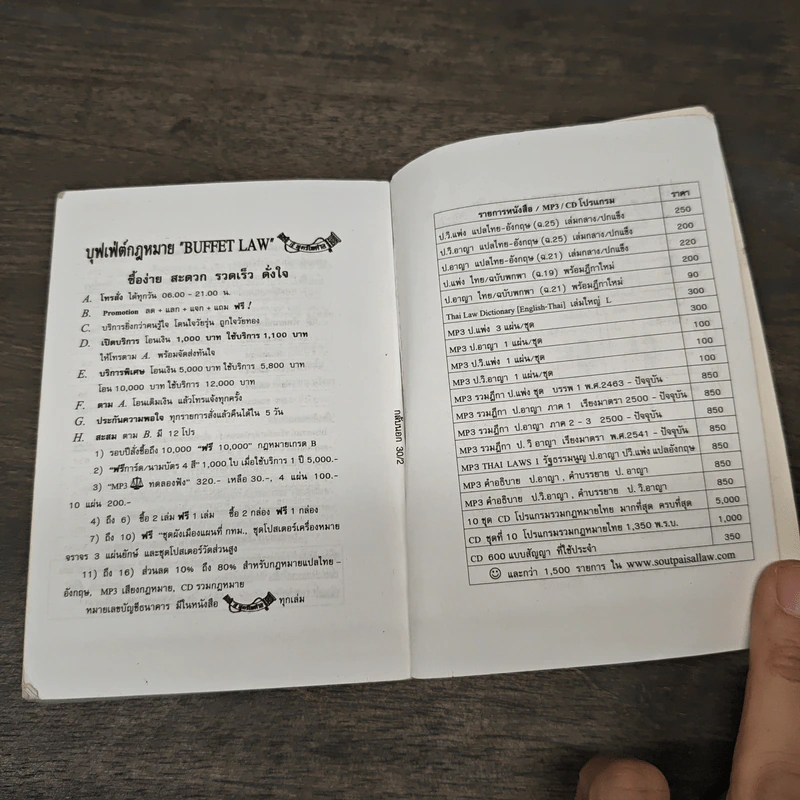 บุฟเฟ่ต์กฎหมาย "BUFFET LAW"
ซื้อง่าย สะดวก รวดเร็ว ดั่งใจ
A. โทรสั่ง ได้ทุกวัน 06.00 - 21.00 น.
B. Promotion ลด + แลก + แจก + แถม ฟรี !
C. บริการยิ่งกว่าคนรู้ใจ โดนใจวัยรุ่น ถูกใจวัยทอง
D. เปิดบริการ โอนเงิน 1,000 บาท ใช้บริการ 1,100 บาท
ให้โทรตาม A. พร้อมจัดส่งทันใจ
E. บริการพิเศษ โอนเงิน 5,000 บาท ใช้บริการ 5,800 บาท
โอน 10,000 บาท ใช้บริการ 12,000 บาท
F. ตาม A. โอนเติมเงิน แล้วโทรแจ้งทุกครั้ง
G. ประกันความพอใจ ทุกรายการสั่งแล้วคืนได้ใน 5 วัน
H. สะสม ตาม B. มี 12 โปร
1) รอบปีสั่งซื้อถึง 10,000 "ฟรี 10,000" กฎหมายเกรด B
2) "ฟรีการ์ด/นามบัตร 4 สี" 1,000 ใบ เมื่อใช้บริการ 1 ปี 5,000.-
3) "MP3 ทดลองฟัง" 320.- เหลือ 30.-, 4 แผ่น 100.-
10 แผ่น 200.-
4) ถึง 6) ซื้อ 2 เล่ม ฟรี 1 เล่ม ซื้อ 2 กล่อง ฟรี 1 กล่อง
7) ถึง 10) ฟรี "ชุดผังเมืองแผนที่ กทม., ชุดโปสเตอร์เครื่องหมาย
จราจร 3 แผ่นยักษ์ และชุดโปสเตอร์วัดส่วนสูง
11) ถึง 16) ส่วนลด 10% ถึง 80% สำหรับกฎหมายแปลไทย -
อังกฤษ, MP3 เสียงกฎหมาย, CD รวมกฎหมาย
หมายเลขบัญชีธนาคาร มีในหนังสือ ทุกเล่ม
กลับนอก 30/2
รายการหนังสือ / MP3 / CD โปรแกรม ราคา
ป.วิ.แพ่ง แปลไทย-อังกฤษ (ฉ.25) เล่มกลาง/ปกแข็ง 250
ป.วิ.อาญา แปลไทย-อังกฤษ (ฉ.25) เล่มกลาง/ปกแข็ง 200
ป.อาญา แปลไทย-อังกฤษ (ฉ.21) เล่มกลาง/ปกแข็ง 220
ป.แพ่ง ไทย/ฉบับพกพา (ฉ.19) พร้อมฎีกาใหม่ 200
ป.อาญา ไทย/ฉบับพกพา (ฉ.21) พร้อมฎีกาใหม่ 90
Thai Law Dictionary [English-Thai] เล่มใหญ่ L 300
MP3 ป.แพ่ง 3 แผ่น/ชุด 300
MP3 ป.อาญา 1 แผ่น/ชุด 100
MP3 ป.วิ.แพ่ง 1 แผ่น/ชุด 100
MP3 ป.วิ.อาญา 1 แผ่น/ชุด 100
MP3 รวมฎีกา ป.แพ่ง ชุด บรรพ 1 พ.ศ.2463 - ปัจจุบัน 850
MP3 รวมฎีกา ป.อาญา ภาค 1 เรียงมาตรา 2500 - ปัจจุบัน 850
MP3 รวมฎีกา ป.อาญา ภาค 2 - 3 2500 - ปัจจุบัน 850
MP3 รวมฎีกา ป. วิ อาญา เรียงมาตรา พ.ศ.2541 - ปัจจุบัน 850
MP3 THAI LAWS 1 รัฐธรรมนูญ ป.อาญา ปวิ.แพ่ง แปลอังกฤษ 850
MP3 คำอธิบาย ป.อาญา , คำบรรยาย ป. อาญา 850
MP3 คำอธิบาย ป.วิ.อาญา , คำบรรยาย ป. วิ.อาญา 850
10 ชุด CD โปรแกรมรวมกฎหมายไทย มากที่สุด ครบที่สุด 5,000
CD ชุดที่ 10 โปรแกรมรวมกฎหมายไทย 1,350 พ.ร.บ. 1,000
CD 600 แบบสัญญา ที่ใช้ประจำ 350
และกว่า 1,500 รายการ ใน www.soutpaisallaw.com